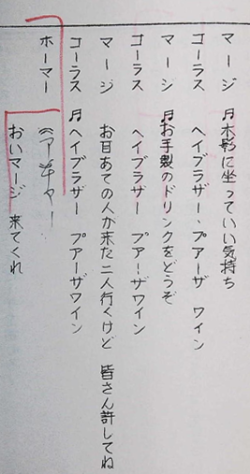 マージ ♬木影に坐っていい気持ち
コーラス ヘイブラザー、プアーザ ワイン
マージ ♬お手製のドリンクをどうぞ
コーラス ヘイブラザー プアーザワイン
マージ お耳あての人が来た二人行くけど 皆さん許してね
コーラス ♬ヘイブラザー プアーザワイン
ホーマー
おいマージ 来てくれ